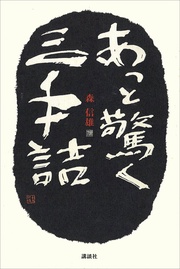 あっと驚く
三手詰
森 信雄
講談社